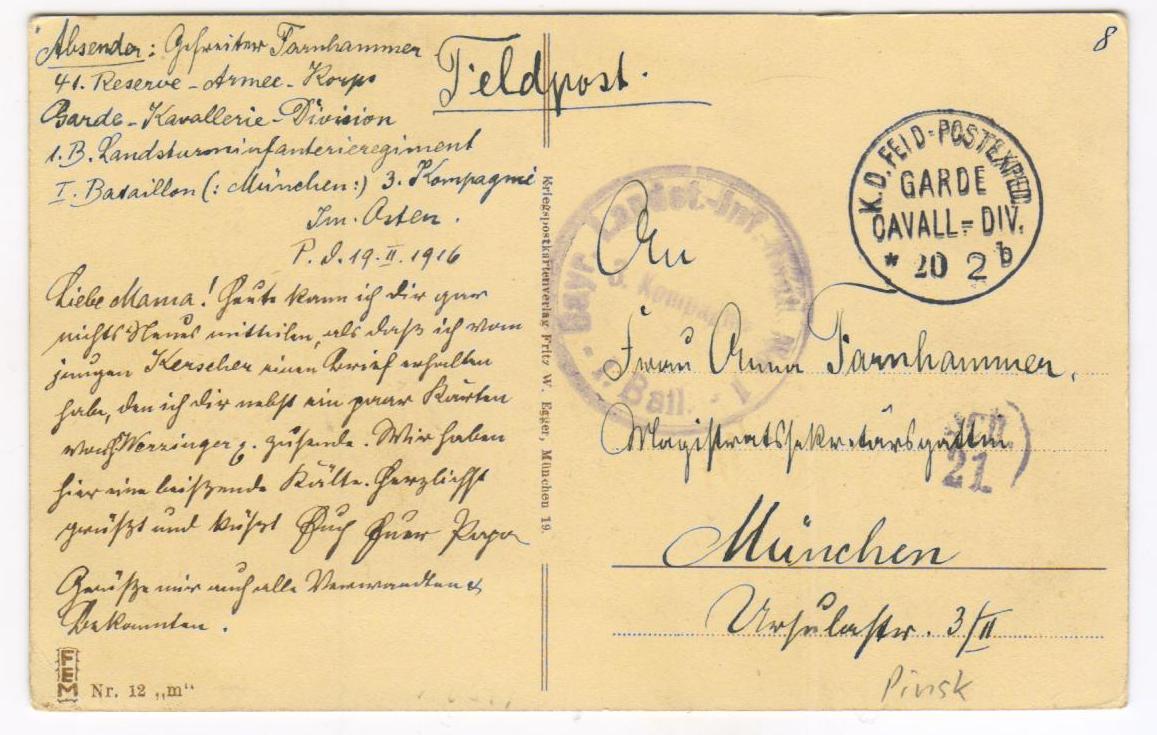 Absender: Gefreiter Tarnhammer
41. Reserve-Armee-Korps
Garde-Kavallerie-Division
1. B. Landsturminfanterieregiment
I. Bataillon (: München:) 3. Kompagnie
Im Osten.
P. d. 19. II. 1916
Liebe Mama! Heute kann ich dir gar
nichts Neues mitteilen, als daß ich vom
jungen Kerscher einen Brief erhalten
habe, den ich dir nebst ein paar Karten
zusende. Wir haben
hier eine beißende Kälte. Herzlichst
grüßt und küßt Euch Euer Papa
Grüße mir auch alle Verwandten &
Bekannten.
FEM
Nr. 12 „m“
Kriegspostkartenverlag Fritz W. Egger, München 19.
Feldpost.
8
K.D. FELD-POSTEXPED.
GARDE
CAVALL=DIV.
* 20 2 b
Bayr. Landst.-Inf.-Regt. No. 1
3. Kompagnie
Batl.
An
Frau Anna Tarnhammer,
Magistratssekretärsgattin
21
München
Ursulastr. 3/II
Pinsk